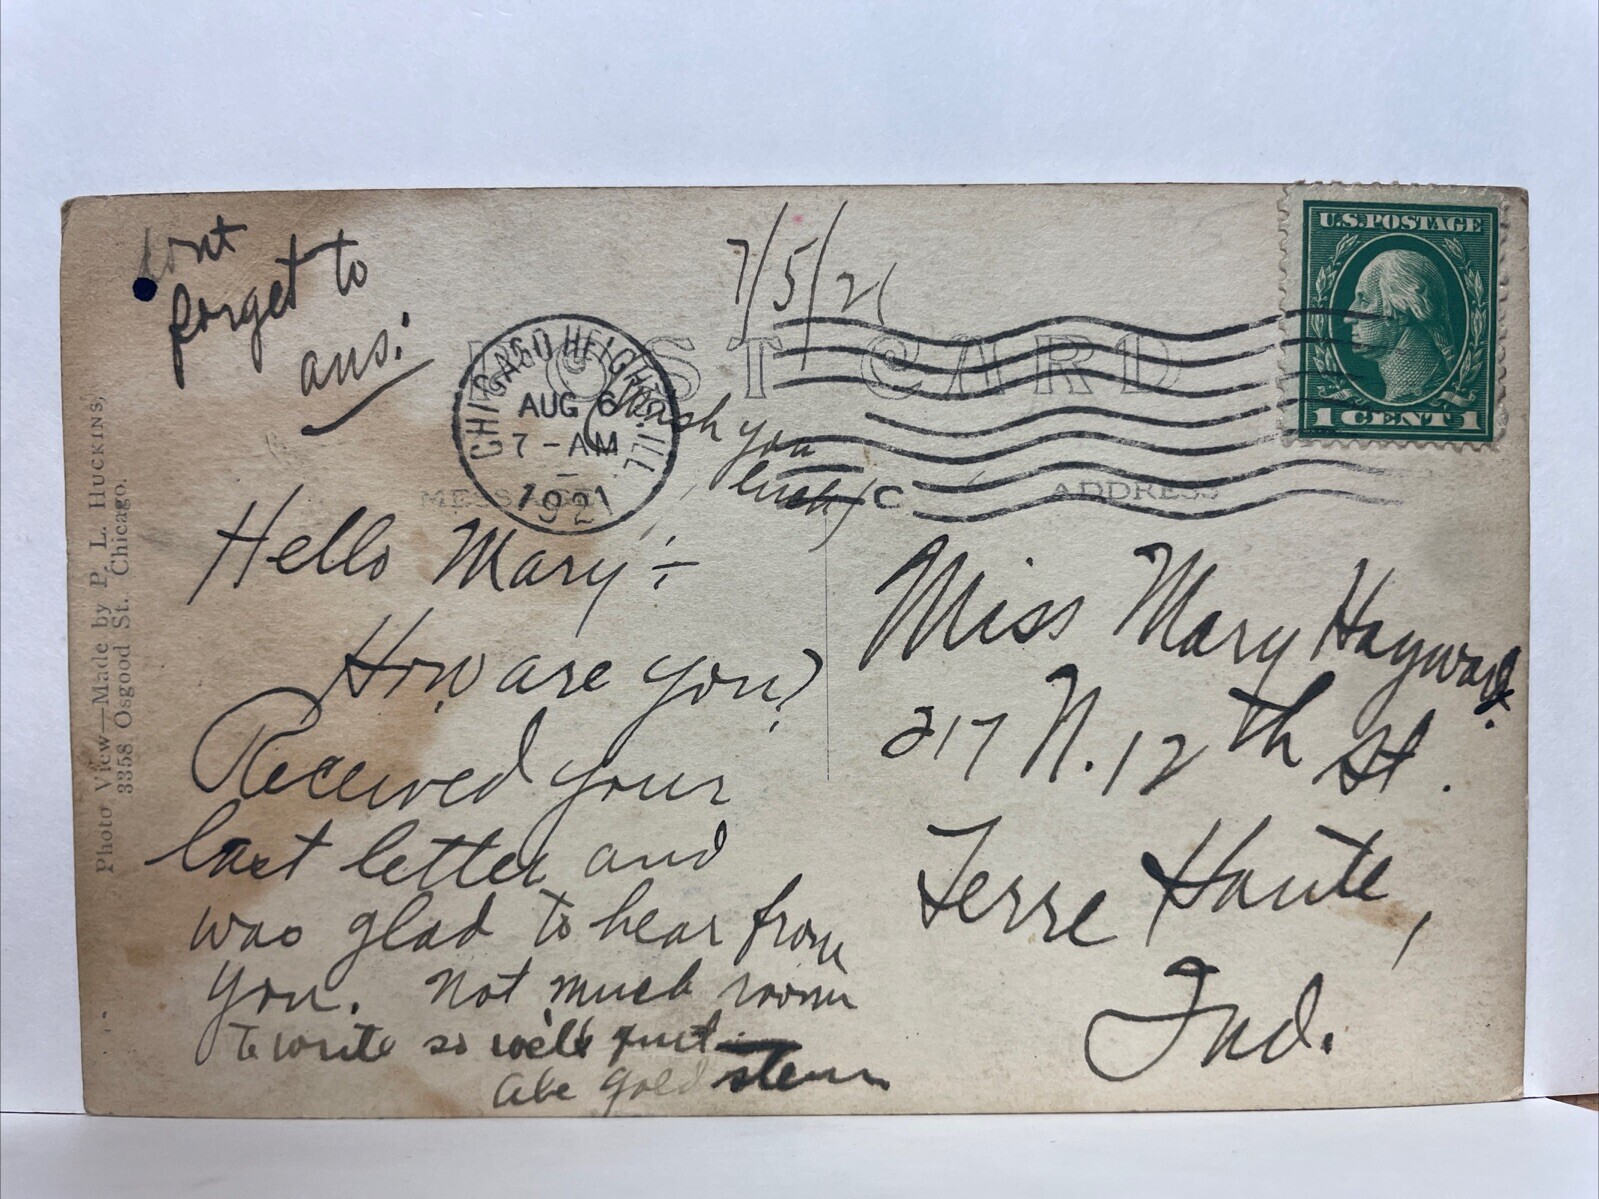 dont
forget to
ans:
7/5/21
U.S. POSTAGE
1 CENT 1
POST CARD
CHICAGO HEIGHTS. ILL
AUG 6
7 - AM
1921
(Wish you
luck)
MESSAGE
C
ADDRESS
Hello Mary ÷
How are you?
Received your
last letter and
was glad to hear from
you. Not much room
to write so will quit.
Abe Goldstein
Miss Mary Hayward.
217 N. 12th St.
Terre Haute,
Ind.
Photo View—Made by P. L. HUCKINS,
3358 Osgood St. Chicago.